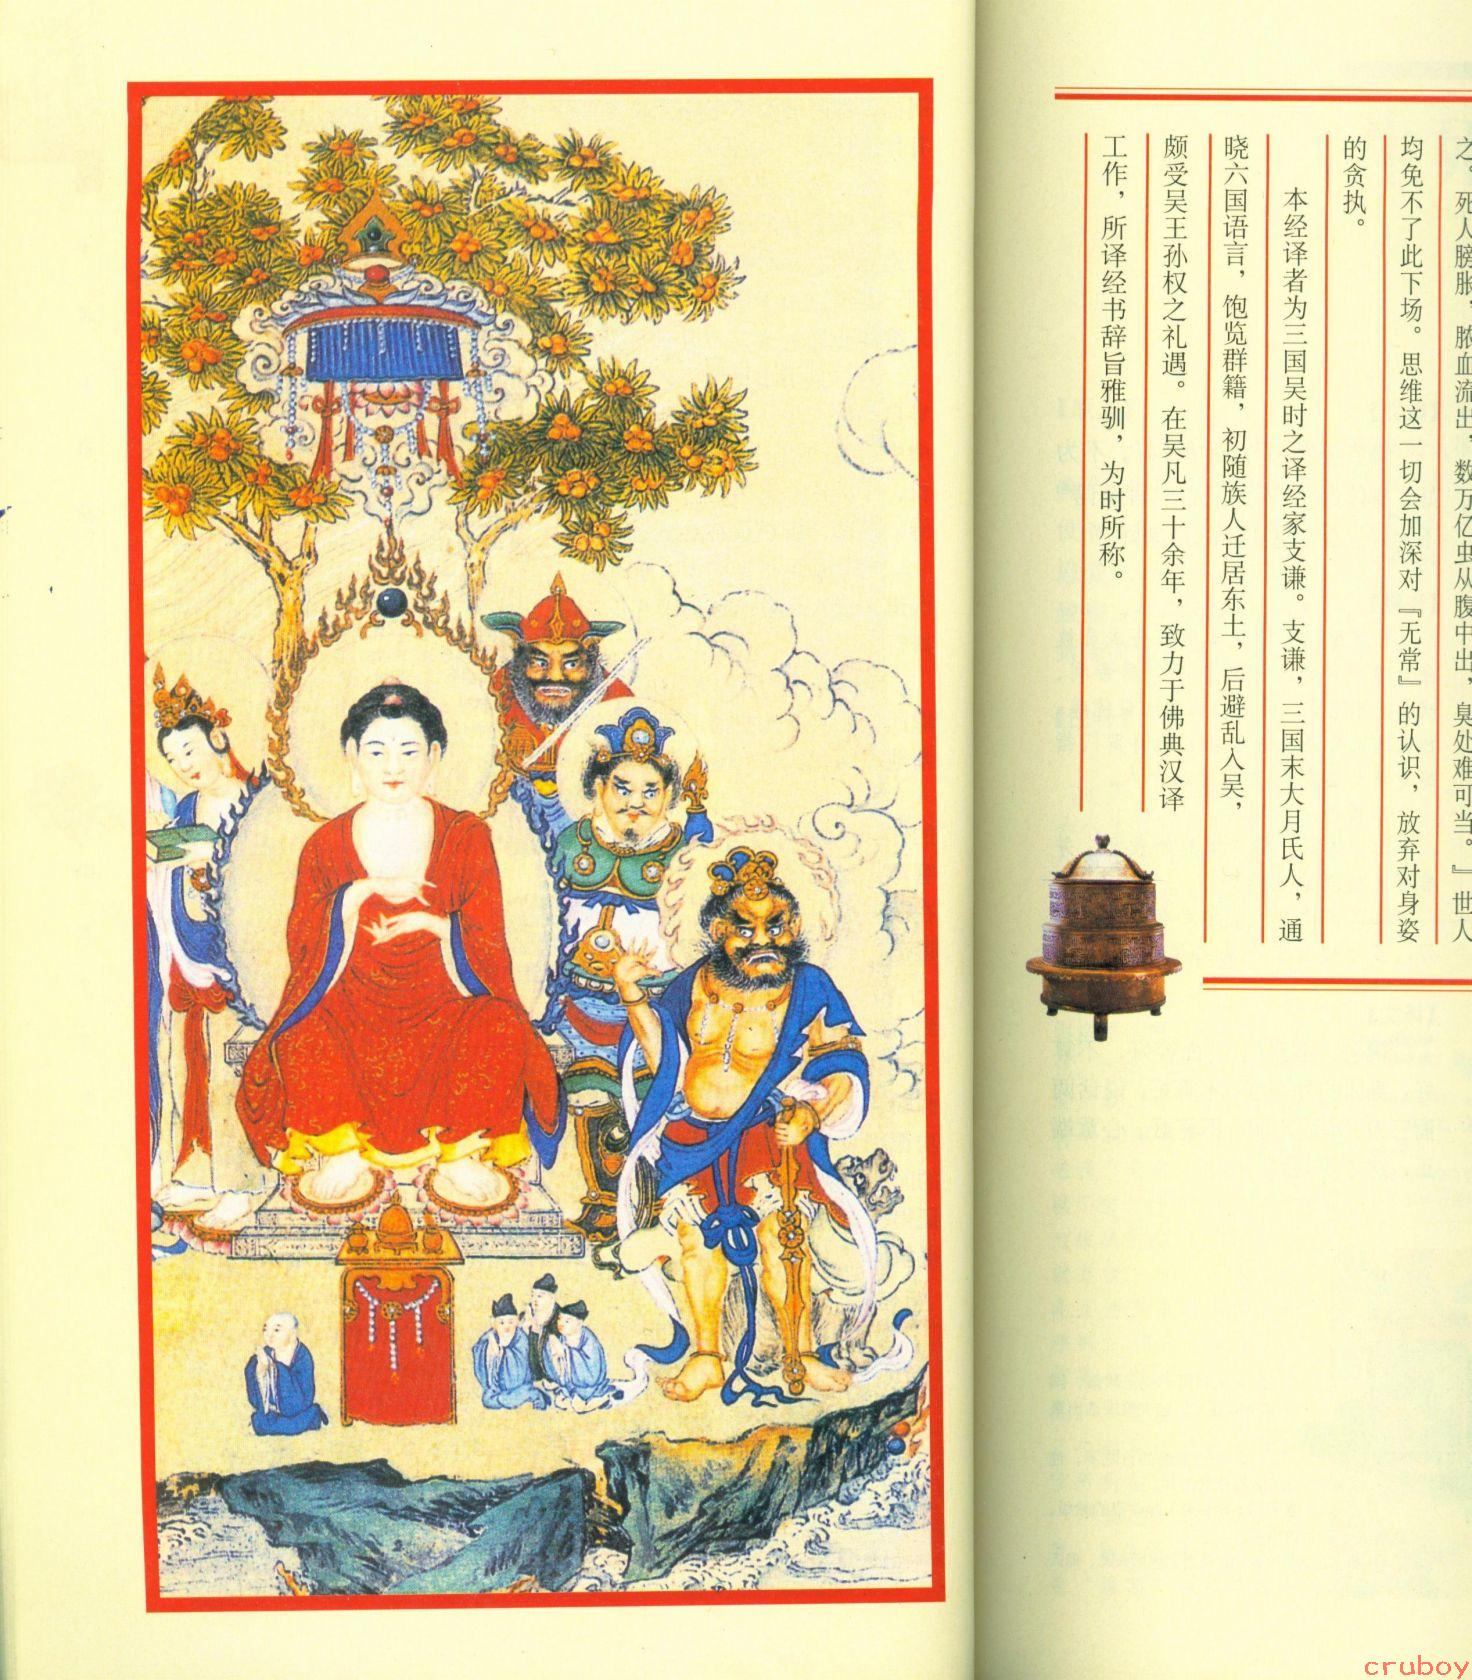 之。死人膀胀，脓血流出，数万亿虫从腹中出，臭处难可当。』世人
均免不了此下场。思维这一切会加深对『无常』的认识，放弃对身姿
的贪执。
本经译者为三国吴时之译经家支谦。支谦，三国末大月氏人，通
晓六国语言，饱览群籍，初随族人迁居东土，后避乱入吴，
颇受吴王孙权之礼遇。在吴凡三十余年，致力于佛典汉译
工作，所译经书辞旨雅驯，为时所称。
cruboy